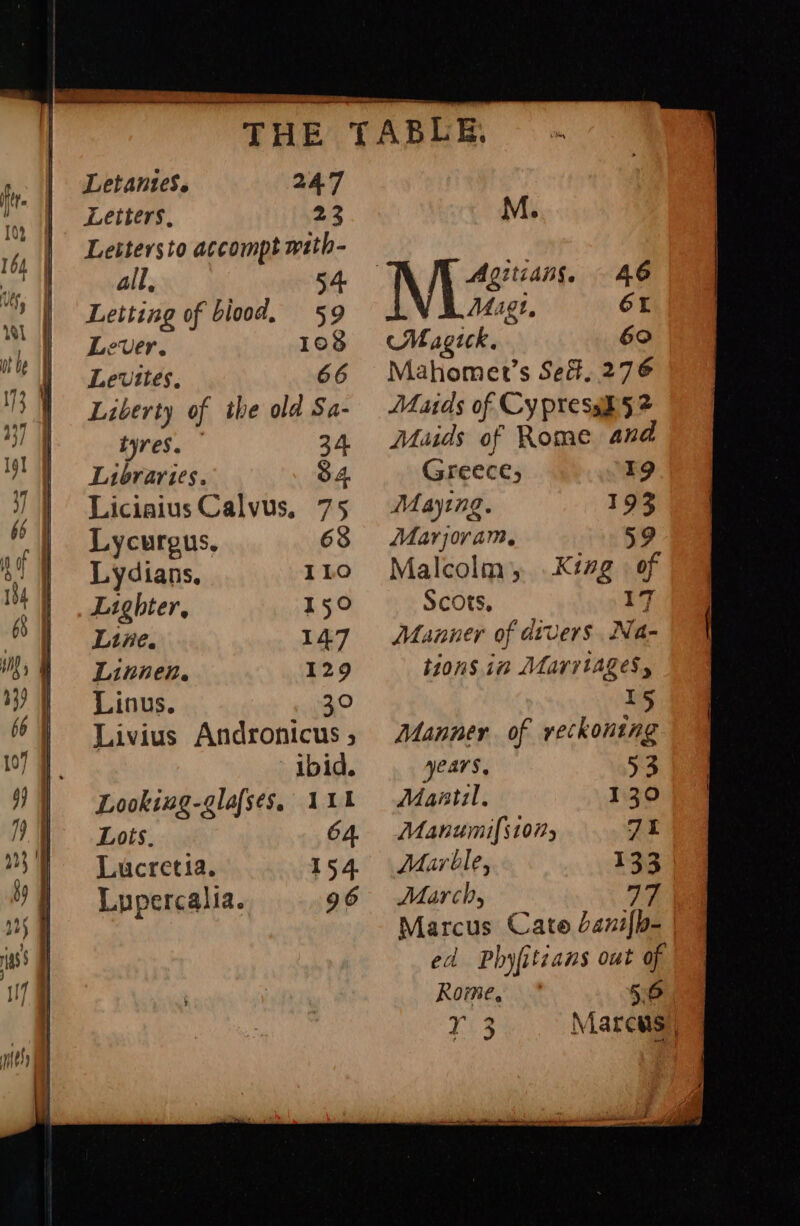 THE TABLE.
Letanies. 247
Letters. 23
Letters to accompt with-
all. 54
Letting of blood. 59
Lever. 108
Levites. 66
Liberty of the old Sa-
tyres. 34
Libraries. 84
Licinius Calvus. 75
Lycurgus. 68
Lydians. 110
Lighter. 150
Line. 147
Linnen. 129
Linus. 30
Livius Andronicus;
ibid.
Looking-glaſses. 111
Lots. 64
Lucretia. 154
Lupercalia. 96
M.
MAgitians. 46
Magi. 61
Magick. 60
Mahomet's Sect. 276
Maids of Cypress 152
Maids of Rome and
Greece, 19
Maying. 193
Marjoram. 59
Malcolm, King of
Scots. 17
Manner of divers Na-
tions in Marriages,
15
Manner of reckoning
years. 53
Mantil. 130
Manumiſsion, 71
Marble, 133
March, 77
Marcus Cato baniſh-
ed Phyſitians out of
Rome. 56
T 3 Marcus